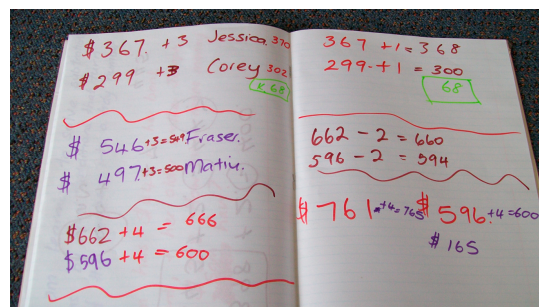 $367. +3 Jessica 370
$299 +3 Corey 302
x 68
$ 546 +3=549 Fraser.
$ 497 +3=500 Matiu.
$662 +4 = 666
$596 +4 = 600
367 +1 = 368
299 +1 = 300
68
662 - 2 = 660
596 - 2 = 594
$761 +4=765 $596. +4=600
$165